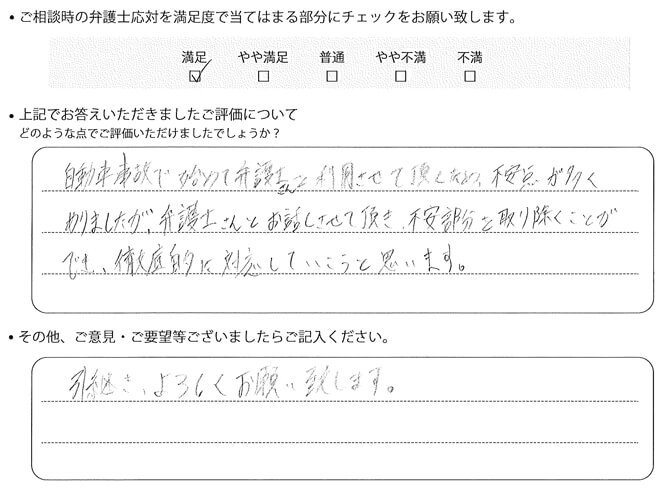 • ご相談時の弁護士応対を満足度で当てはまる部分にチェックをお願い致します。
満足 やや満足 普通 やや不満 不満
☑ ☐ ☐ ☐ ☐
• 上記でお答えいただきましたご評価について
どのような点でご評価いただけましたでしょうか？
自動車事故で始めて弁護士さんを利用させて頂くため、不安点が多く
ありましたが、弁護士さんとお話しさせて頂き、不安部分を取り除くことが
でき、徹底的に対応していこうと思います。
• その他、ご意見・ご要望等ございましたらご記入ください。
引継き、よろしくお願い致します。